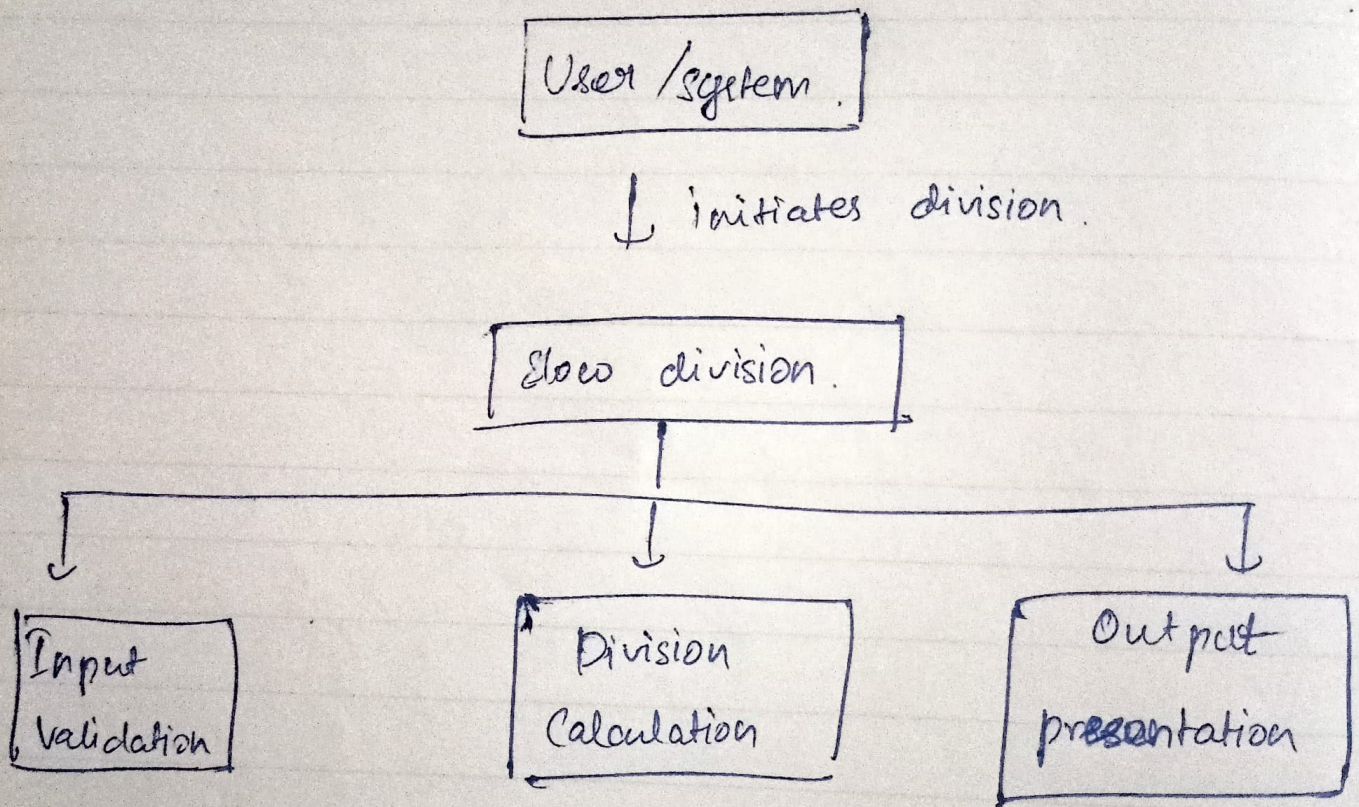 User / system.
initiates division.
Slow division.
Input
validation
Division
Calculation
Output
presentation